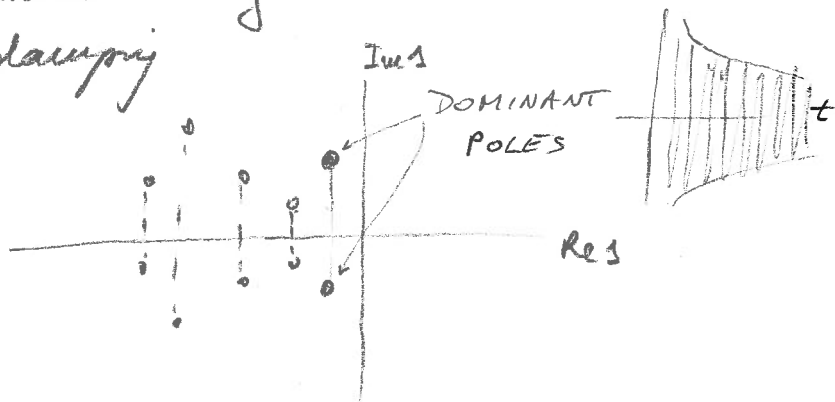 damping
Im s
DOMINANT
POLES
t
Re s